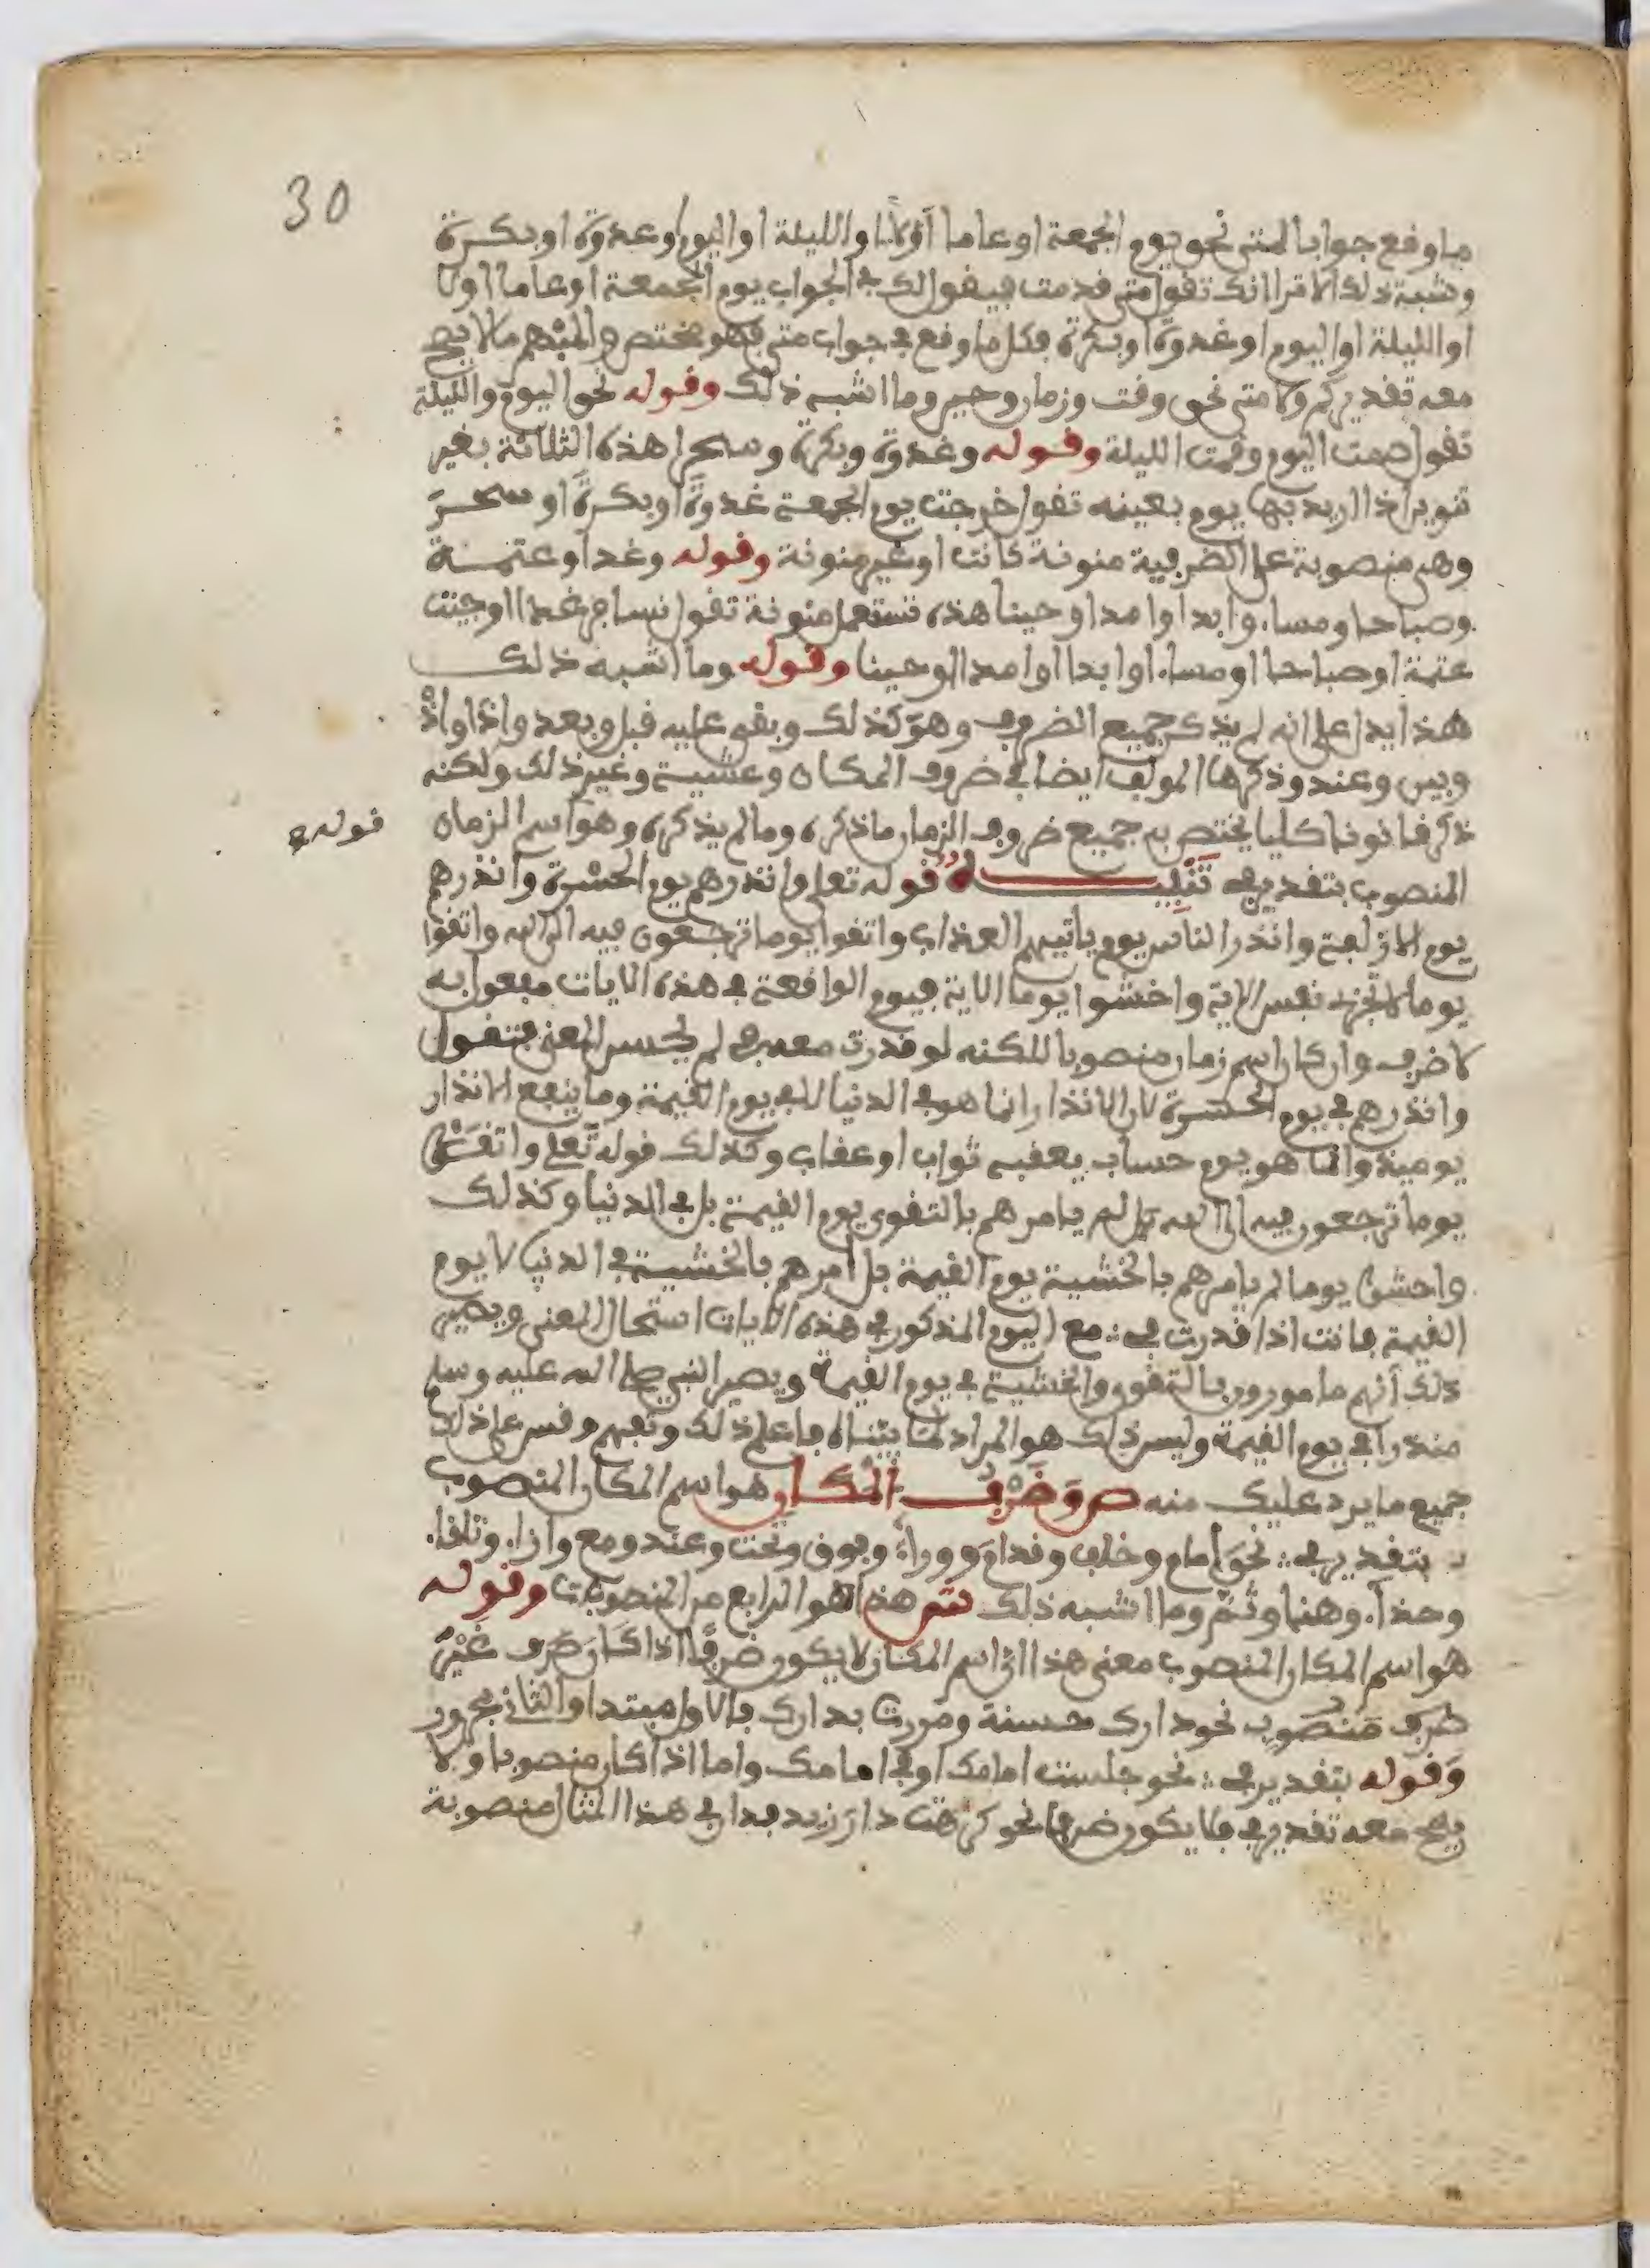 30
ما وقع جوابا لمتى نحو يوم الجمعة او عاما اولا او الليلة او اليوم او غدوة او بكرة
وشبه ذلك الا ترا انك تقول متى قدمت فيقول لك في الجواب يوم الجمعة او عاما اولا
او الليلة او اليوم او غدوة او بكرة فكل ما وقع في جواب متى فهو مختص والمبهم ما لا يصح
معه تقدير كم ولا متى نحو وقت وزمان وحين وما اشبه ذلك وقوله نحو اليوم والليلة
تقول صمت اليوم وقمت الليلة وقوله وغدوة وبكرة وسحرا هذه الثلاثة بغير
تنوين اذا اريد بها يوم بعينه تقول خرجت يوم الجمعة غدوة او بكرة او سحر
وهي منصوبة على الضرفية منونة كانت او غير منونة وقوله وغدا وعتمة
وصباحا ومساء وابدا وامدا وحينا هذه تستعمل منونة تقول نسافر غدا او جئت
عتمة او صباحا او مساء او ابدا او امدا او حينا وقوله وما اشبه ذلك
هذا يدل على انه لم يذكر جميع الضروف وهو كذلك وبقي عليه قبل وبعد واذا واذ
وبين وعند وذكرها المولف ايضا في ضروف المكان وعشية وغير ذلك ولكنه
ذكر قانونا كليا يختص به جميع ضروف الزمان ما ذكره وما لم يذكره وهو اسم الزمان
قوله في
المنصوب بتقدير في تنبيه قوله تعلى وانذرهم يوم الحسرة وانذرهم
يوم الازفة وانذر الناس يوم ياتيهم العذاب واتقوا يوما ترجعون فيه الى الله واتقوا
يوما لا تجزي نفس الاية واخشوا يوما الاية فيوم الواقعة في هذه الايات مفعول به
لا ضرف وان كان اسم زمان منصوبا لاكنه لو قدرت معه في لم يحسن المعنى فتقول
وانذرهم في يوم الحسرة لان الانذار انما هو في الدنيا لا في يوم القيمة وما ينفع الانذار
يوميذ وانما هو يوم حساب يعقبه ثواب او عقاب وكذلك قوله تعلى واتقوا
يوما ترجعون فيه الى الله لم يامرهم بالتقوى يوم القيمة بل في الدنيا وكذلك
واخشوا يوما لم يامرهم بالخشية يوم القيمة بل امرهم بالخشية في الدنيا لا يوم
القيمة فانت اذا قدرت في مع اليوم المذكور في هذه الايات استحال المعنى ويصير
ذلك انهم مامورون بالتقوى والخشية في يوم القيمة ويصير النبي صلى الله عليه وسلم
منذرا في يوم القيمة وليس ذلك هو المراد لما بيناه فاعلم ذلك وتفهم وقس على ذلك
جميع ما يرد عليك منه ص وضرف المكان هو اسم المكان المنصوب
بتقدير في نحو امام وخلف وقدام ووراء وفوق وتحت وعند ومع وازاء وتلقاء
وحذاء وهنا وثم وما اشبه ذلك ش هذا هو الرابع من المنصوبات وقوله
هو اسم المكان المنصوب معنى هذا ان اسم المكان لا يكون ضرفا اذا كان غير
منصوب نحو دارك حسنة ومررت بدارك فالاول مبتدا والثاني مجرور
وقوله بتقدير في نحو جلست امامك او في امامك واما اذا كان منصوبا ولا
يصح معه تقدير في فلا يكون ضرفا نحو كرهت دار زيد فدار في هذا المثال منصوبة